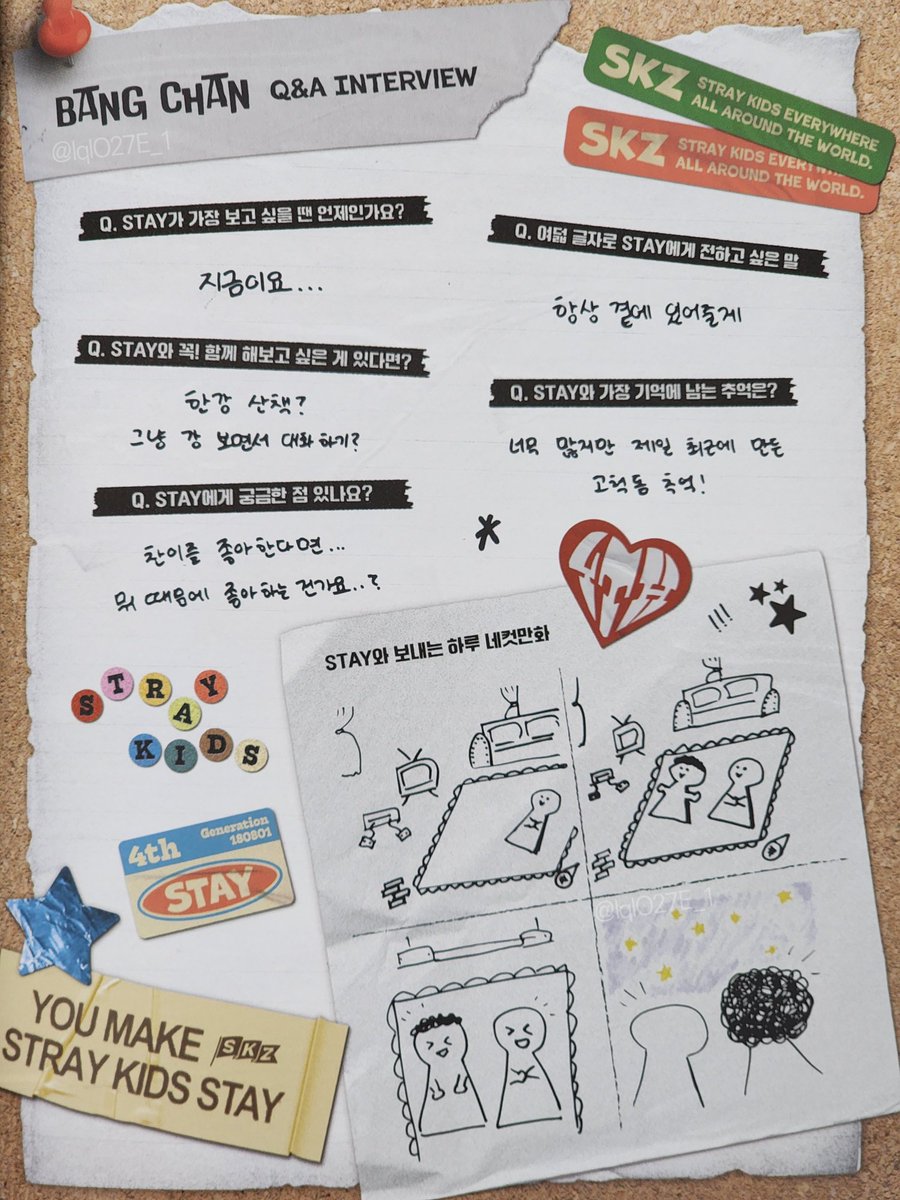 BANG CHAN Q&A INTERVIEW
@IqIO27E_1
SKZ STRAY KIDS EVERYWHERE
ALL AROUND THE WORLD.
SKZ STRAY KIDS EVERYWHERE
ALL AROUND THE WORLD.
Q. STAY가 가장 보고 싶을 땐 언제인가요?
지금이요...
Q. STAY와 꼭! 함께 해보고 싶은 게 있다면?
한강 산책?
그냥 강 보면서 대화하기?
Q. STAY에게 궁금한 점 있나요?
찬이를 좋아한다면...
뭐 때문에 좋아하는 건가요..?
Q. 여덟 글자로 STAY에게 전하고 싶은 말
항상 곁에 있어줄게
Q. STAY와 가장 기억에 남는 추억은?
너무 많지만 제일 최근에 만든
고척돔 추억!
STRAY
KIDS
4th Generation
180801
STAY
YOU MAKE SKZ
STRAY KIDS STAY
4TH
STAY와 보내는 하루 네컷만화
@IqIO27E_1